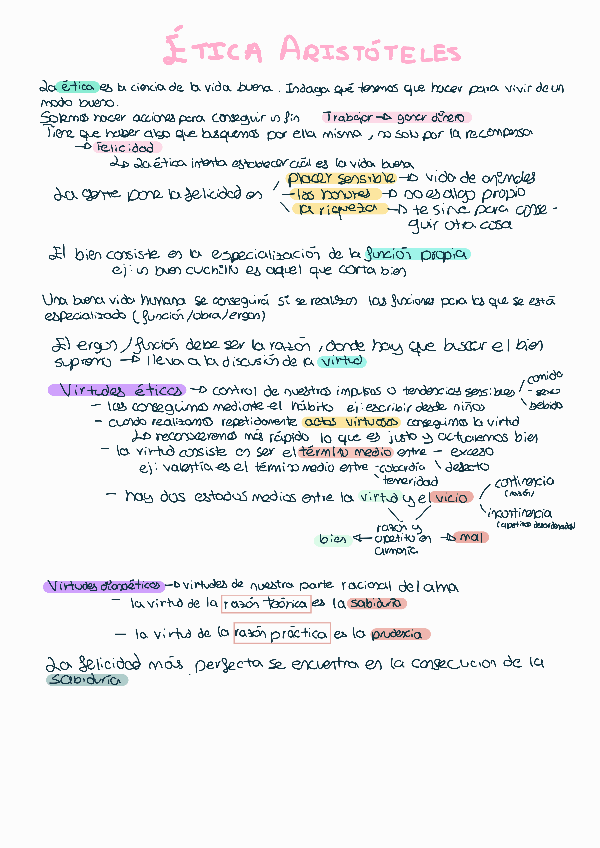 ÉTICA ARISTÓTELES
La ética es la ciencia de la vida buena. Indaga qué tenemos que hacer para vivir de un
modo bueno.
Solemos hacer acciones para conseguir un fin Trabajar → ganar dinero
Tiene que haber algo que busquemos por ella misma, no solo por la recompensa
→ Felicidad
↳ La ética intenta establecer cuál es la vida buena
placer sensible → vida de animales
La gente pone la felicidad en — los honores → no es algo propio
la riqueza → te sirve para conse-
guir otra cosa
El bien consiste en la especialización de la función propia
ej: un buen cuchillo es aquel que corta bien
Una buena vida humana se conseguirá si se realizan las funciones para las que se está
especializado (función/obra/ergon)
El ergon/función debe ser la razón, donde hay que buscar el bien
supremo → lleva a la discusión de la virtud
Virtudes éticas → control de nuestros impulsos o tendencias sensibles / comida
- sexo
\ bebida
- las conseguimos mediante el hábito ej: escribir desde niños
- cuando realizamos repetidamente actos virtuosos conseguimos la virtud
↳ reconoceremos más rápido lo que es justo y actuaremos bien
- la virtud consiste en ser el término medio entre - exceso
\ defecto
ej: valentía es el término medio entre - cobardía
\ temeridad
- hay dos estados medios entre la virtud y el vicio
continencia
(razón)
incontinencia
(apetitos desordenados)
bien ← razón y apetito en armonía → mal
Virtudes dianoéticas → virtudes de nuestra parte racional del alma
- la virtud de la razón teórica es la sabiduría
- la virtud de la razón práctica es la prudencia
La felicidad más perfecta se encuentra en la consecucion de la
sabiduría